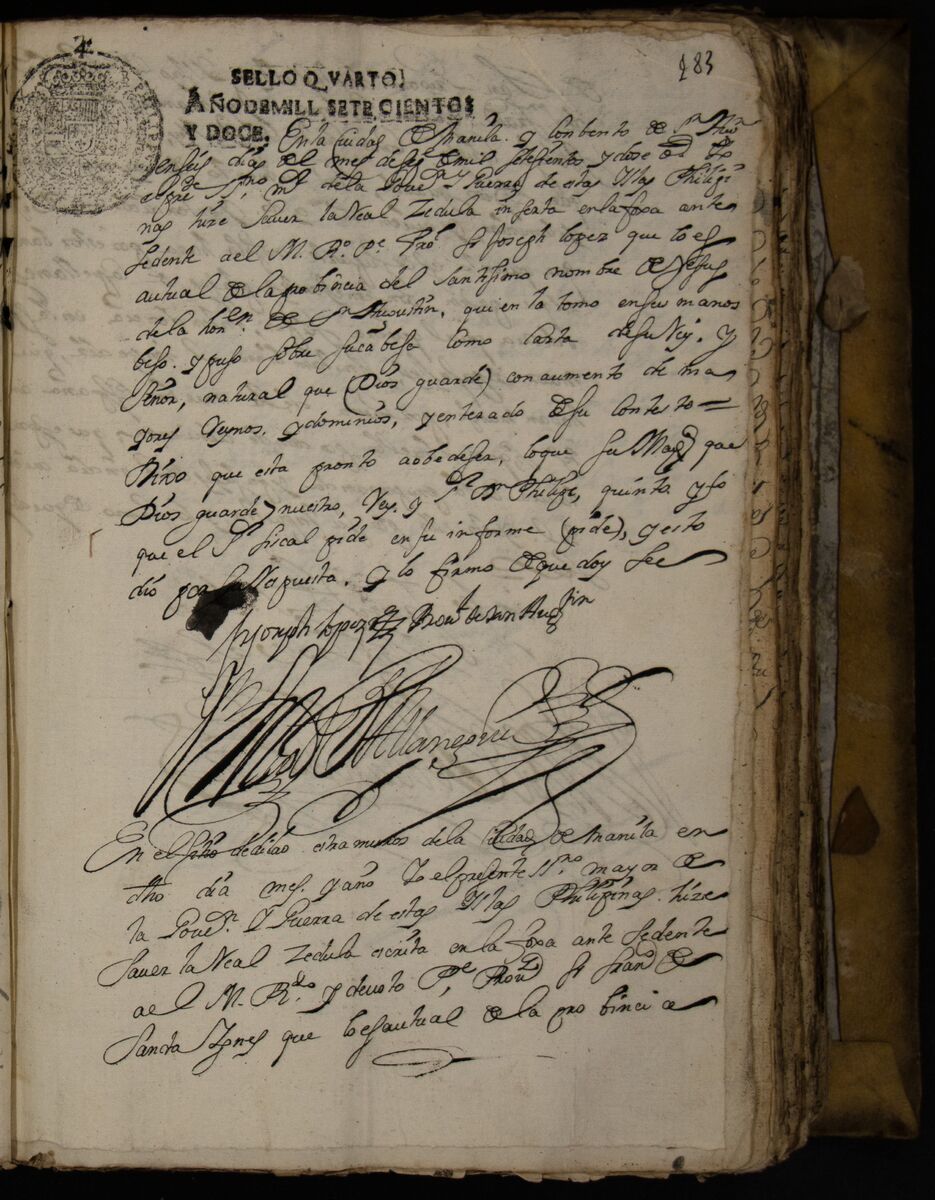 283
4º
SELLO QVARTO,
AÑO DE MILL SETECIENTOS
Y DOCE.
En la ciudad de Manila y Conbento de
en seis dias del mes de mil setesientos y dose
el press.te SS.no m.or de la Gover.n y Guerra de estas Yslas Philipi
nas hize saver la Real Zedula inserta en la foxa ante
sedente a el M. R.o P.e Pro.l fr Joseph lopez que lo es
autual de la probincia del santissimo nombre de Jesus
de la horn. de S.n Augustin, quien la tomo en sus manos
beso, y puso sobre su cabesa como carta de su Rey, y
señor, natural que (Dios guarde) con aumento de ma
yores Reynos, y dominios, y enterado de su contesto =
Dixo que esta pronto a obedeser, lo que su Mag.d que
Dios guarde nuestro, Rey, y S.r Dn Philipe, quinto, y lo
que el S.r fiscal pide en su informe (pide), y esto
dio por su Respuesta, y lo firmo de que doy fee
fr Joseph lopez Prou.l de san Augustin
Villanueva
En el sitio de dilao estramuros de la ciudad de Manila en
dho dia mes, y año Yo el presente SS.no mayor de
la Gover.n Y Guerra de estas Yslas Philipinas hize
saver la Real Zedula escrita en la foxa ante sedente
a el M. R.do y devoto P.e Prou.l fr Fran.co de
Santa Ygnes que lo es autual de la probincia